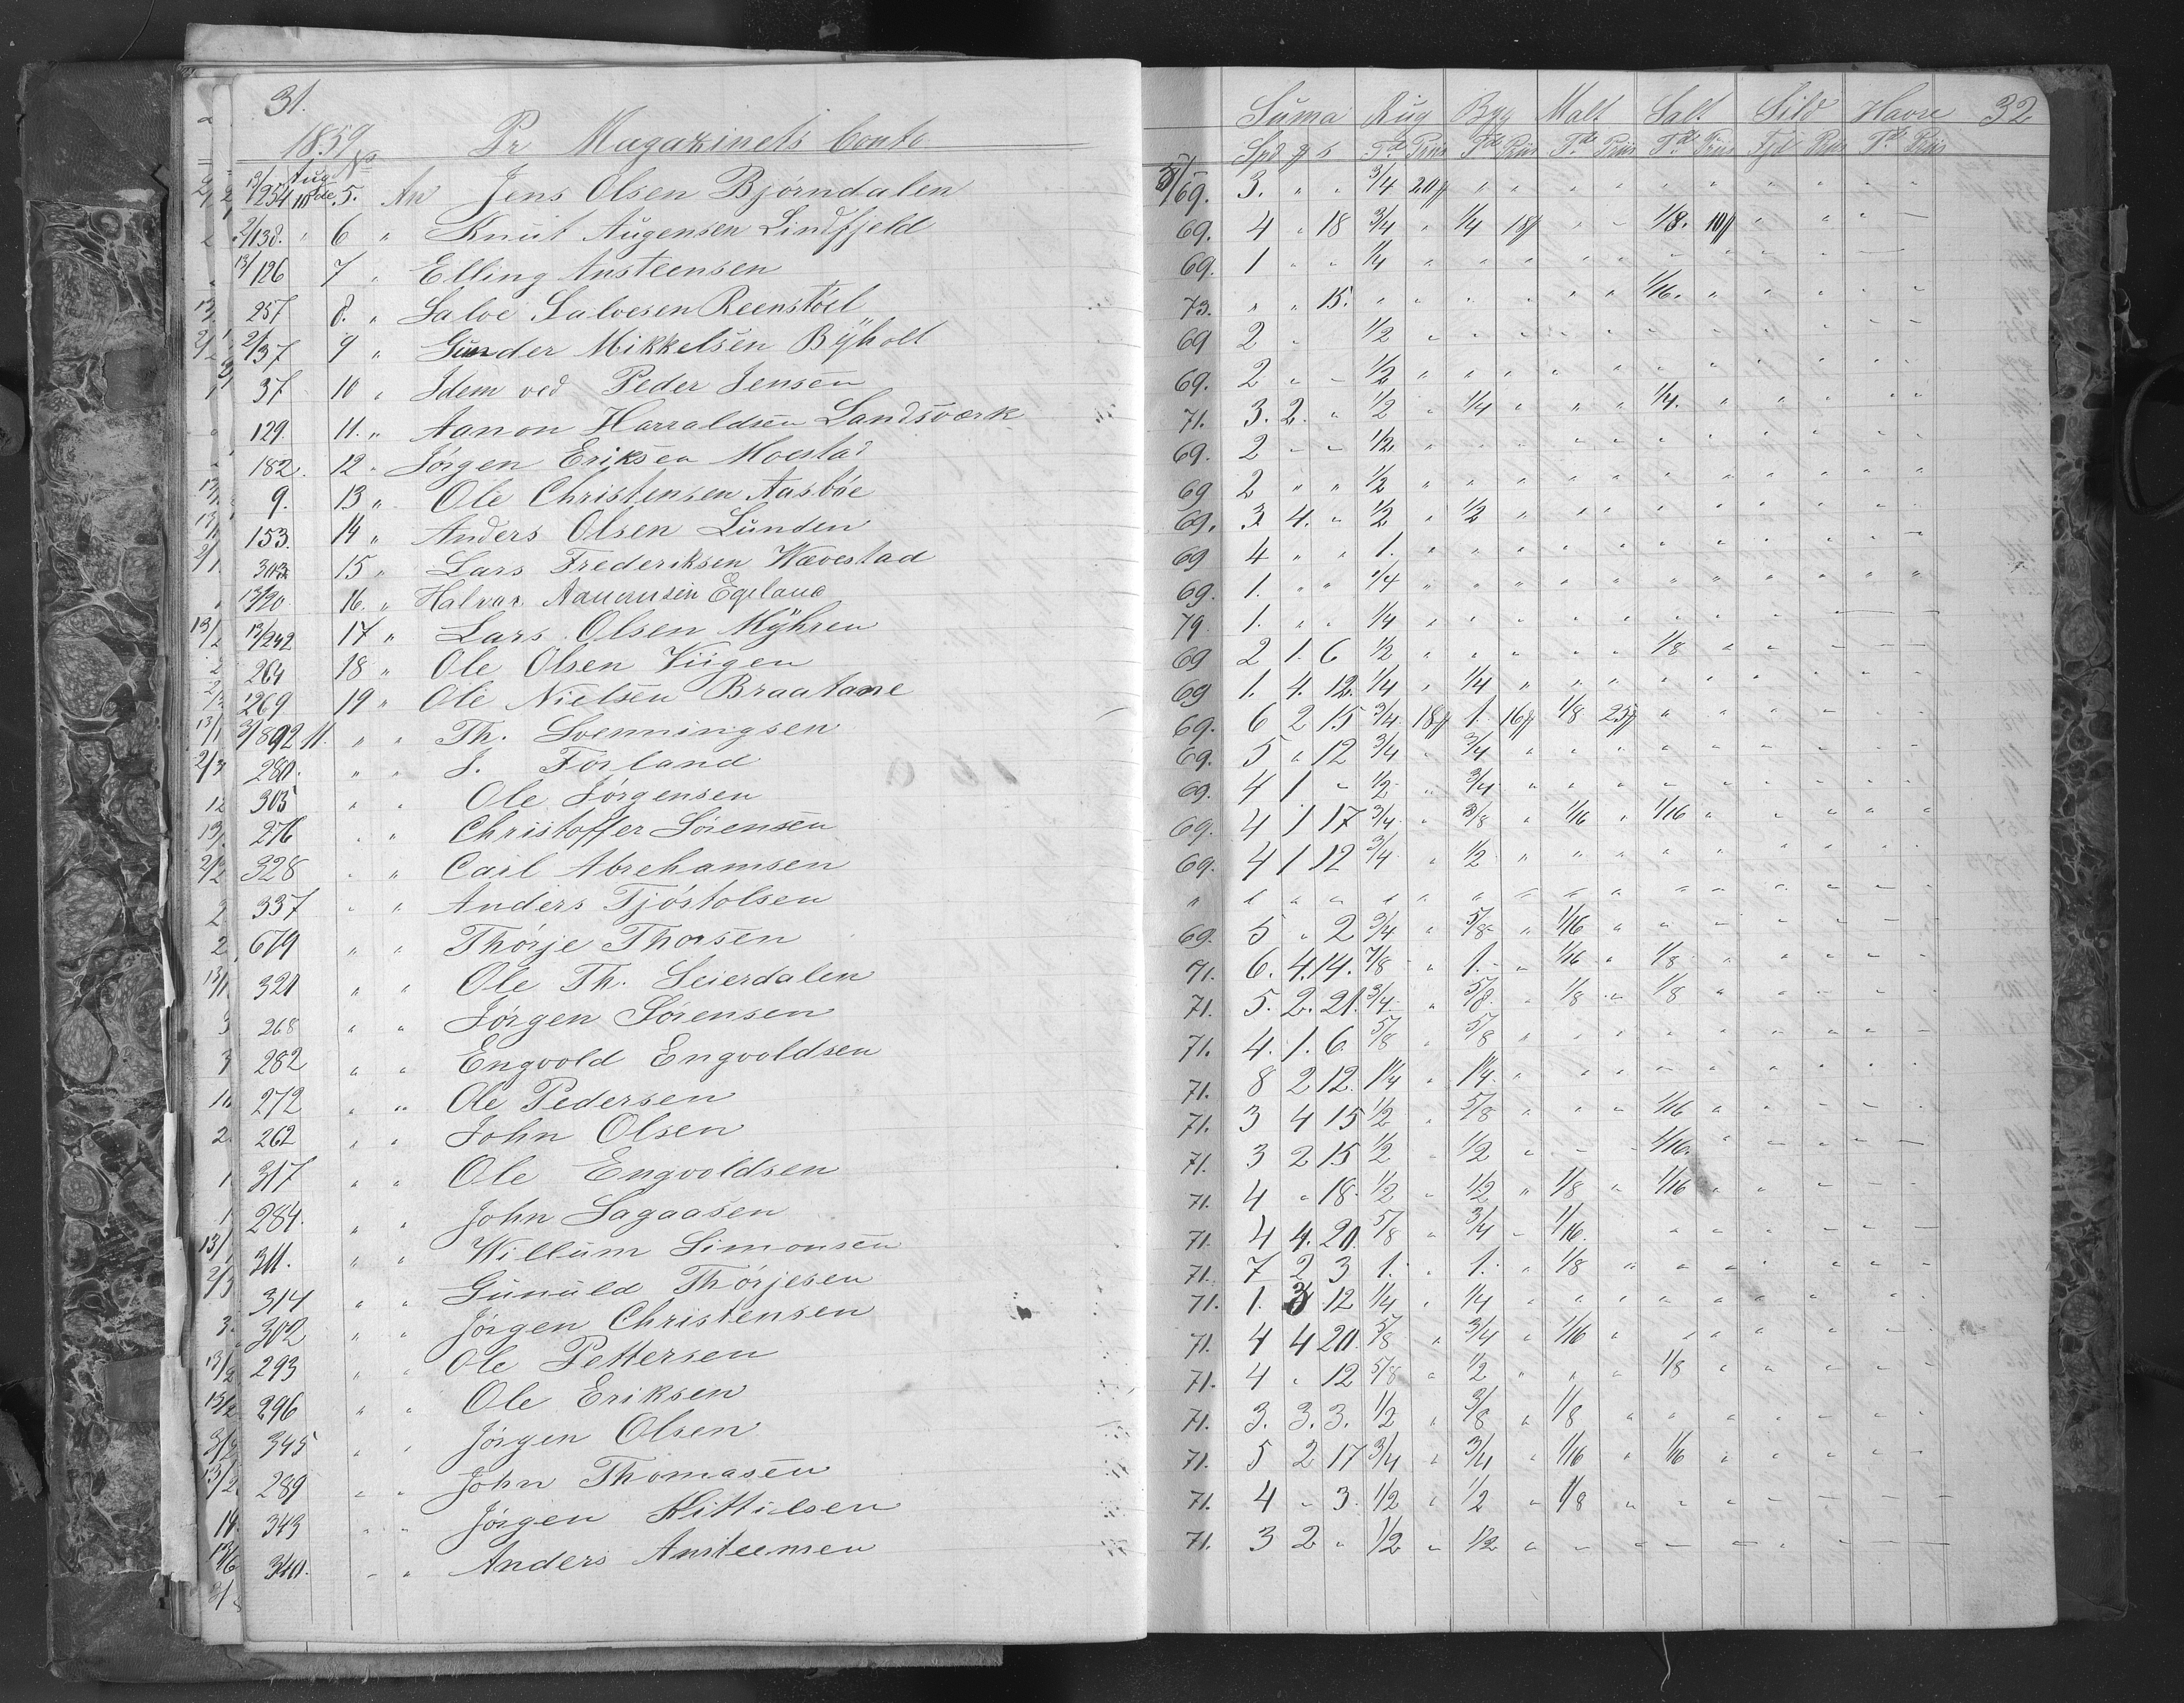 31.
1859 Pr Magazinets Conto
Aug No
13/254 10de 5. An Jens Olsen Bjørndalen
2/138. " 6 " Knut Augensen Lindfjeld
13/126 7 " Elling Austeensen
257 8. " Salve Salvesen Reenstøel
2/37 9 " Gunder Mikkelsen Bÿholt
37 10 " Idem ved Peder Jensen
129. 11. " Aanon Harraldsen Landsværk
182. 12 " Jørgen Eriksen Moestad
9. 13 " Ole Christensen Aasbøe
153. 14 " Anders Olsen Lunden
303 15 " Lars Frederiksen Wævestad
13/20 16. " Halvar Egeland
13/242 17 " Lars Olsen Mÿhren
264 18 " Ole Olsen Viigen
269 19 " Ole Nielsen Braatane
11. " " Th. Svenningsen
280. " " J. Førland
305 " " Ole Jørgensen
276 " " Christoffer Sørensen
328 " " Carl Abrehamsen
337 " " Anders Tjøstolsen
679 " " Thørje Thorsen
320 " " Ole Th. Seierdalen
268 " " Jørgen Sørensen
282 " " Engvold Engvoldsen
272 " " Ole Pedersen
262 " " John Olsen
317 " " Ole Engvoldsen
284. " " John Sagaasen
311. " " Willum Simonsen
314 " " Gunuld Thørjesen
302 " " Jørgen Christensen
293 " " Ole Pettersen
296 " " Ole Eriksen
345 " " Jørgen Olsen
289 " " John Thomasen
343 " " Jørgen Kittilsen
340. " " Anders Austeensen
Suma Rug Byg Malt Salt Sild Havre 32
Spd ß s Tde Priis Tde Priis Tde Priis Tde Priis Fjd Priis Tde Priis
69. 3. " " 3/4 20ß " " " " " " " " " "
69. 4 " 18 3/4 " 1/4 18ß " " 1/8. 10ß " " " "
69. 1 " " 1/4 " " " " " " " " " " "
73. " " 15. " " " " " " 1/16. " " " " "
69 2 " 1/2 " " " " " " " " " " "
69. 2 " " 1/2 " " " " " " " " " " "
71. 3. 2. " 1/2 " 1/4 " " " 1/4. " " " " "
69. 2 " " 1/2. " " " " " " " " " " "
69 2 " " 1/2 " " " " " " " " " " "
69. 3 4. " 1/2 " 1/2 " " " " " " " " "
69 4 " " 1. " " " " " " " " " " "
69. 1. " " 1/4 " " " " " " " " " " "
79. 1. " " 1/4 " " " " " " " " " " "
69 2 1. 6 1/2 " " " " " 1/8 " " " "
69 1. 4. 12. 1/4 " 1/4 " " " " " " " " "
69. 6 2 15 3/4 18ß 1. 16ß 1/8 23ß " " " " " "
69. 5 " 12 3/4 " 3/4 " " " " " " " " "
69. 4 1 " 1/2 " 3/4 " " " " " " " " "
69. 4 1 17 3/4 " 3/8 " 1/16 " 1/16 " " " " "
69. 4 1 12 3/4 " 1/2 " " " " " " " " "
" " " " " " " " " " " " " " " "
69. 5 " 2 3/4 " 5/8 " 1/16 " " " " " " "
71. 6. 4. 14. 7/8 " 1. " 1/16 " 1/8 " " " " "
71. 5. 2. 21. 3/4 " 5/8 " 1/8 " 1/8 " " " " "
71. 4. 1. 6. 5/8 " 5/8 " " " " " " " " "
71. 8 2 12. 1 1/4 " 1 1/4 " " " " " " " " "
71. 3 4 15 1/2 " 5/8 " " " 1/16 " " " " "
71. 3 2 15 1/2 " 1/2 " " " 1/16 " " " " "
71. 4 " 18 1/2 " 1/2 " 1/8 " 1/16 " " " " "
71. 4 4. 20. 5/8 " 3/4 " 1/16. " " " " " "
71. 7 2 3 1. " 1. " 1/8 " " " " " " "
71. 1. 3 12 1/4 " 1/4 " " " " " " " " "
71. 4 4 20. 5/8 " 3/4 " 1/16 " " " " " " "
71. 4 " 12 5/8 " 1/2 " " " 1/8 " " " " "
71. 3. 3. 3. 1/2 " 3/8 " 1/8 " " " " " " "
71. 5 2 17 3/4 " 3/4 " 1/16 " 1/16 " " " " "
71. 4 " 3. 1/2 " 1/2 " 1/8 " " " " " " "
71. 3 2 " 1/2 " 1/2 " " " " " " " " "